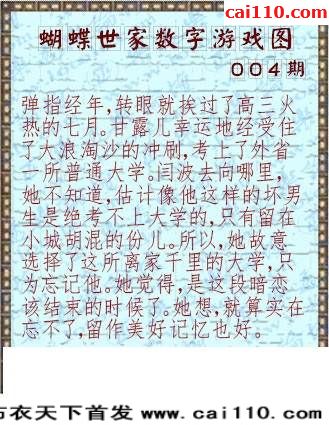 cai110.com
蝴蝶世家数字游戏图
004期
弹指经年,转眼就挨过了高三火
热的七月。甘露儿幸运地经受住
了大浪淘沙的冲刷,考上了外省
一所普通大学。闫波去向哪里,
她不知道,估计像他这样的坏男
生是绝考不上大学的,只有留在
小城胡混的份儿。所以,她故意
选择了这所离家千里的大学,只
为忘记他。她觉得,是这段暗恋
该结束的时候了。她想,就算实在
忘不了,留作美好记忆也好。
布衣天下首发 www.cai110.com